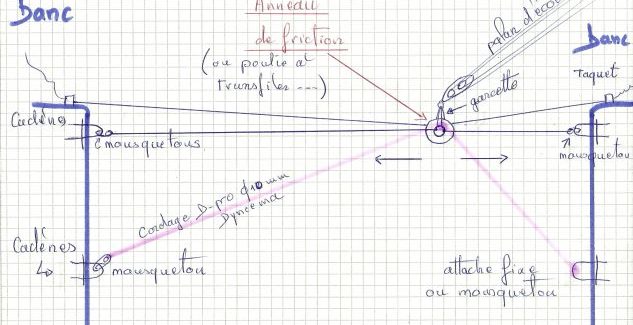 banc
Anneau
de friction
(ou poulie at
transfiles ---)
palan d'écou
garcette
banc
Taquet
Cadènes
mousquetons
mousqueton
Cordage D-pro φ10mm
Dyneema
Cadènes
mousqueton
attache fixe
ou mousqueton